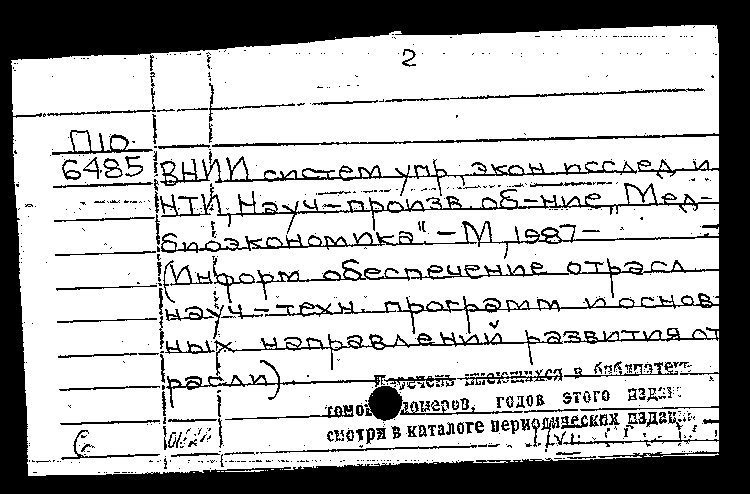 2
П10
6485 ВНИИ систем упр, экон исслед и
НТИ, Науч-произв. об-ние „Мед-
биоэкономика". - М, 1987-
(Информ обеспечение отрасл
науч-техн. программ и основ-
ных направлений развития от
расли).
Перечень имеющихся в библиотеке
томов номеров, годов этого издан
смотри в каталоге периодических издани